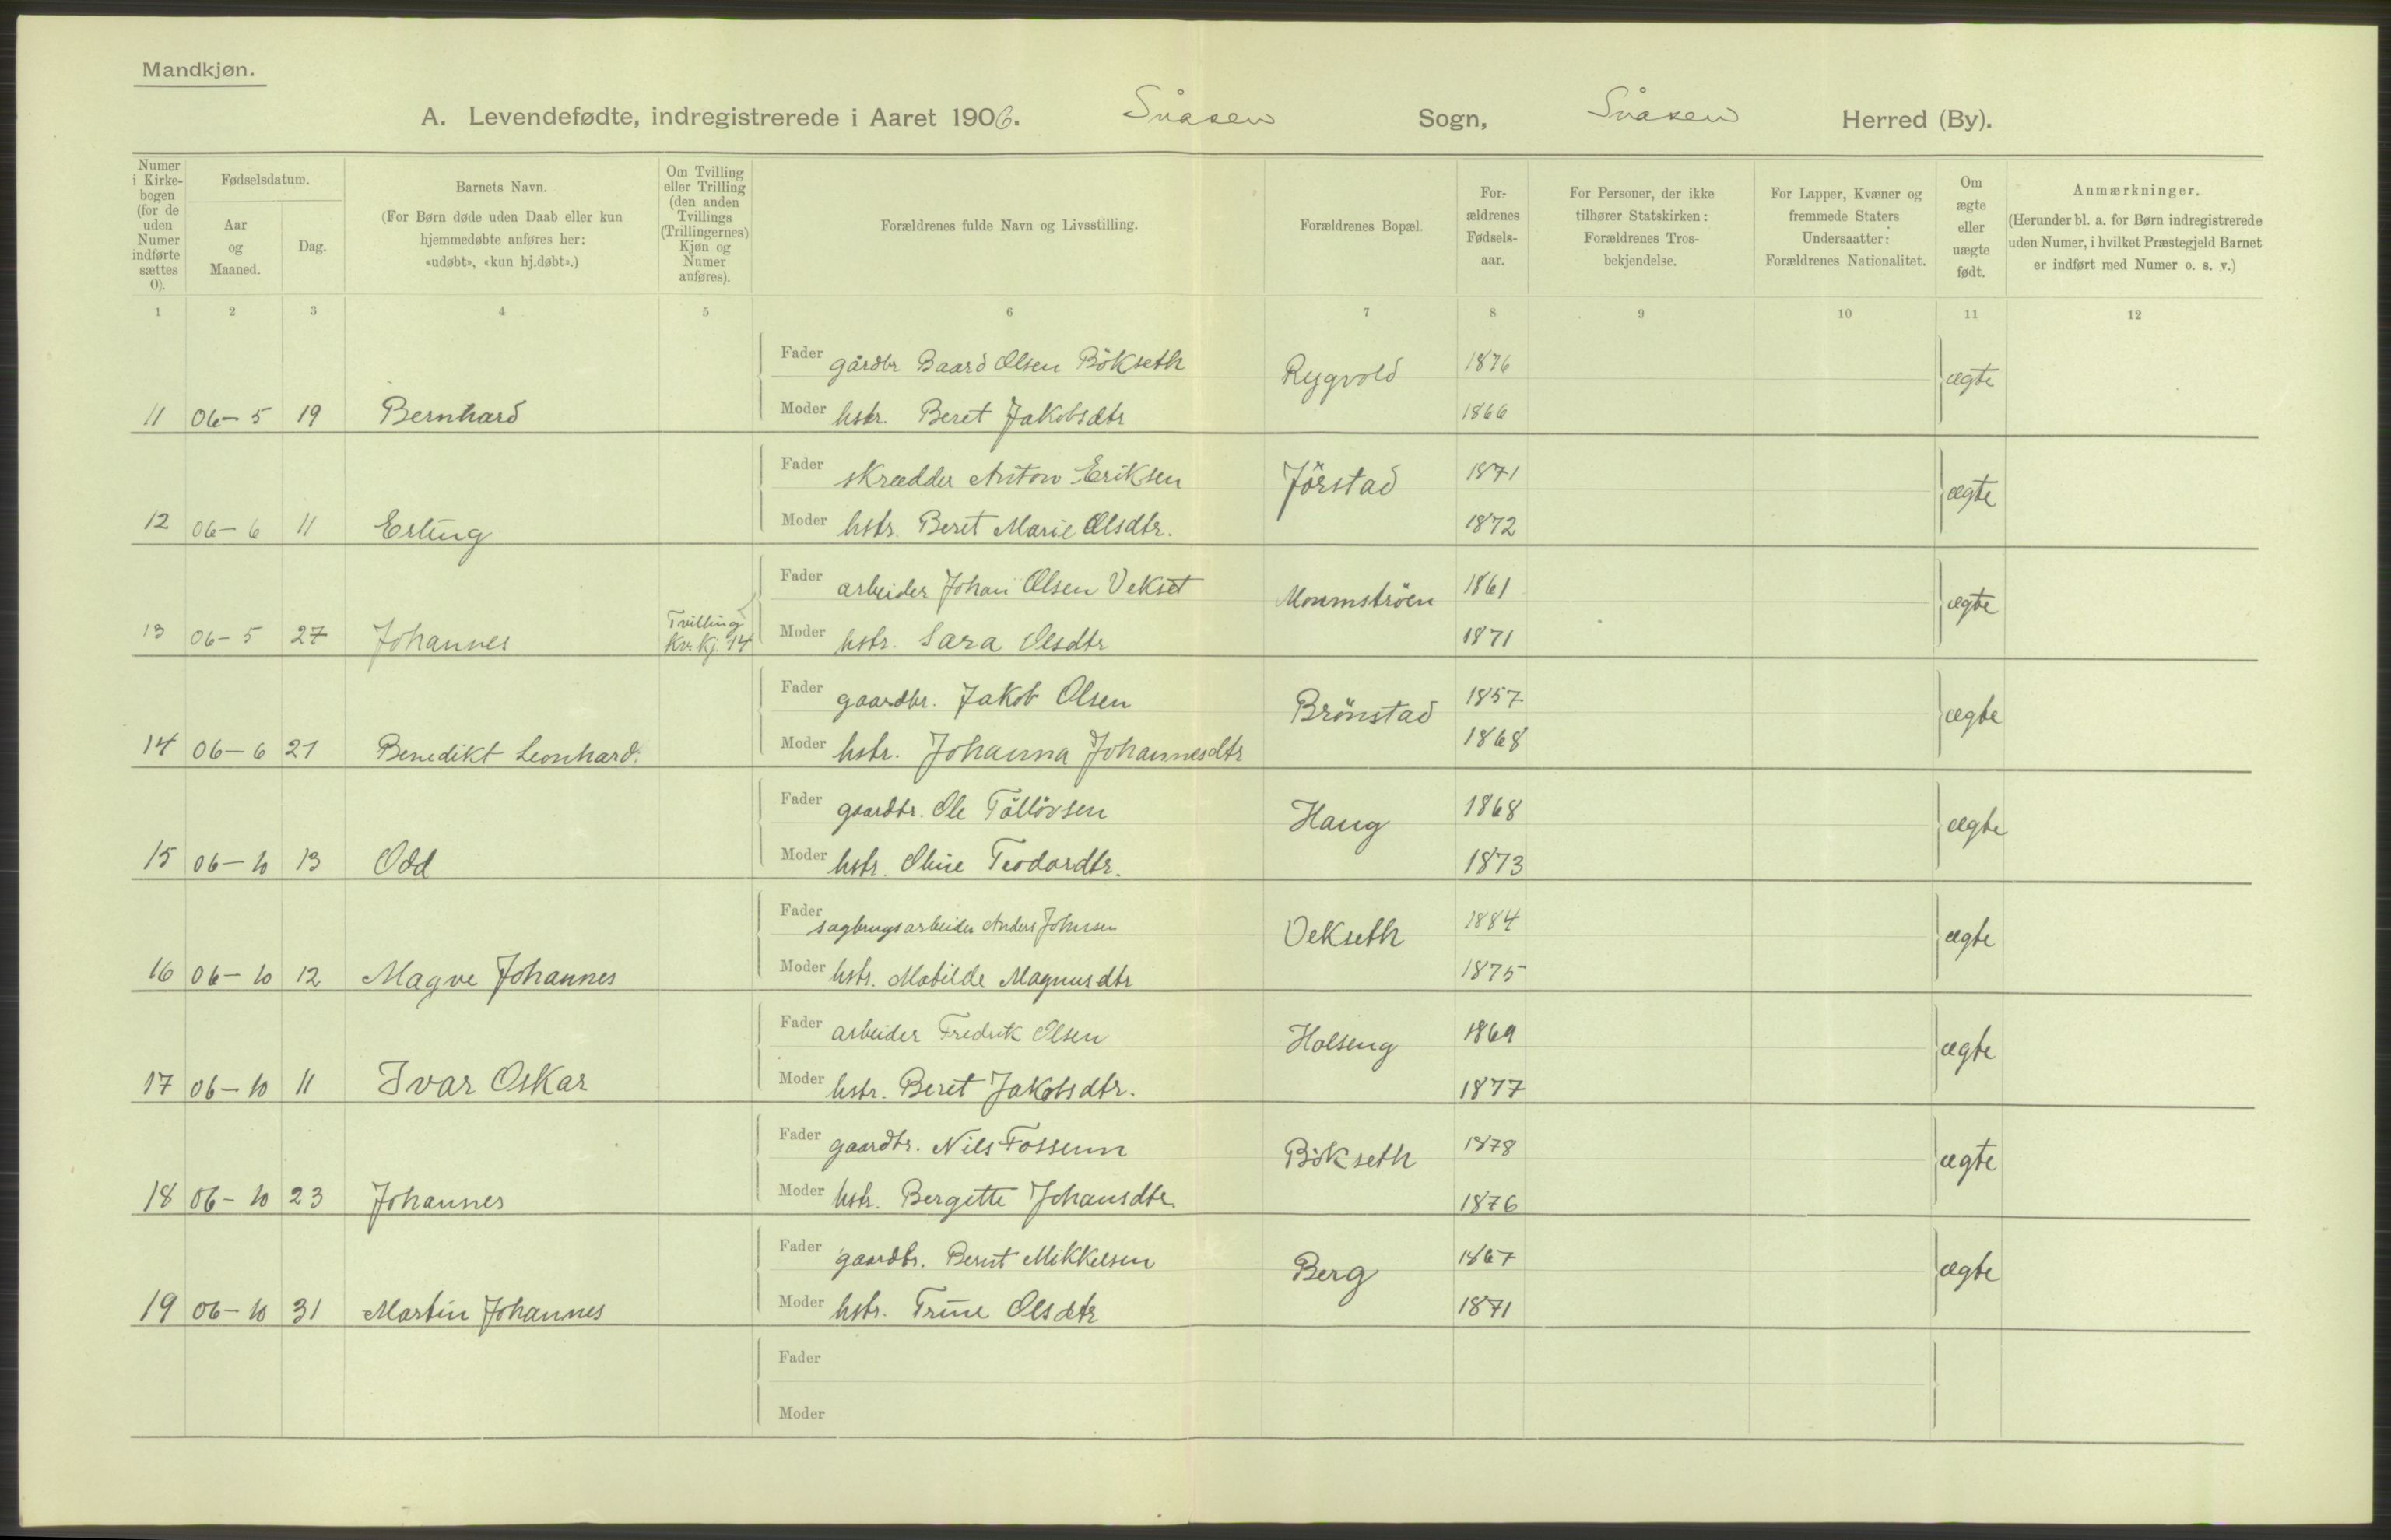 Mandkjøn.
A. Levendefødte, indregistrerede i Aaret 1906. Snåsen Sogn, Snåsen Herred (By).
Numer i Kirkebogen (for de uden Numer indførte sættes 0).
Fødselsdatum.
Aar og Maaned.
Dag.
Barnets Navn.
(For Børn døde uden Daab eller kun hjemmedøbte anføres her: «udøbt», «kun hj.døbt».)
Om Tvilling eller Trilling (den anden Tvillings (Trillingernes) Kjøn og Numer anføres).
Forældrenes fulde Navn og Livsstilling.
Forældrenes Bopæl.
Forældrenes Fødselsaar.
For Personer, der ikke tilhører Statskirken: Forældrenes Trosbekjendelse.
For Lapper, Kvæner og fremmede Staters Undersaatter: Forældrenes Nationalitet.
Om ægte eller uægte født.
Anmærkninger.
(Herunder bl. a. for Børn indregistrerede uden Numer, i hvilket Præstegjeld Barnet er indført med Numer o. s. v.)
1 2 3 4 5 6 7 8 9 10 11 12
Fader gårdbr Baard Olsen Bökseth Rygvold 1876 ægte
11 06-5 19 Bernhard Moder hstr. Beret Jakobsdtr 1866
Fader skrædder Anton Eriksen Jörstad 1871 ægte
12 06-6 11 Erling Moder hstr. Beret Marie Olsdtr. 1872
Fader arbeider Johan Olsen Vekset Moumströen 1861 ægte
13 06-5 27 Johannes Tvilling Kv.Kj. 14 Moder hstr. Sara Olsdtr 1871
Fader gaardbr. Jakob Olsen Brönstad 1857 ægte
14 06-6 21 Benedikt Leonhard. Moder hstr. Johanna Johannesdtr 1868
Fader gaardbr. Ole Töllövsen Haug 1868 ægte
15 06-10 13 Odd Moder hstr. Oline Teodordtr. 1873
Fader sagbrugsarbeider Anders Johnsen Vekseth 1884 ægte
16 06-10 12 Magve Johannes Moder hstr. Matilde Magnusdtr 1875
Fader arbeider Fredrik Olsen Holseng 1869 ægte
17 06-10 11 Ivar Oskar Moder hstr. Beret Jakobsdtr. 1877
Fader gaardbr. Nils Fossum Bökseth 1878 ægte
18 06-10 23 Johannes Moder hstr. Bergitte Johansdtr. 1876
Fader gaardbr. Bernt Mikkelsen Berg 1867 ægte
19 06-10 31 Martin Johannes Moder hstr. Trine Olsdtr 1871
Fader
Moder